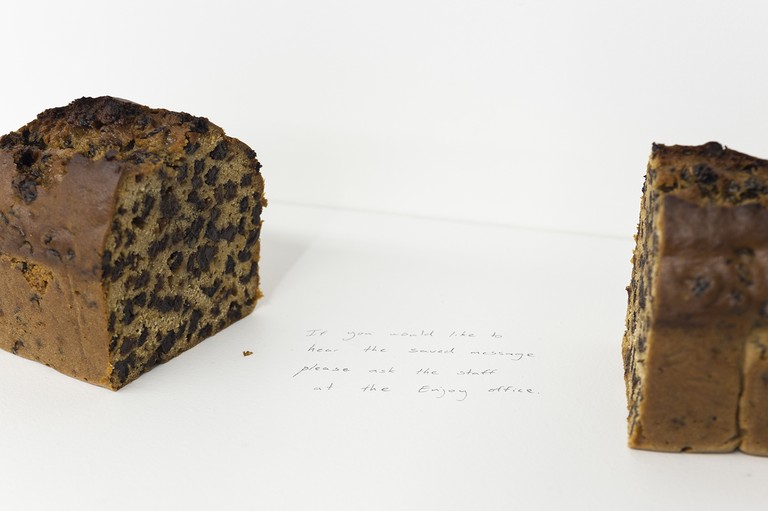 If you would like to
hear the saved message
please ask the staff
at the Enjoy office.